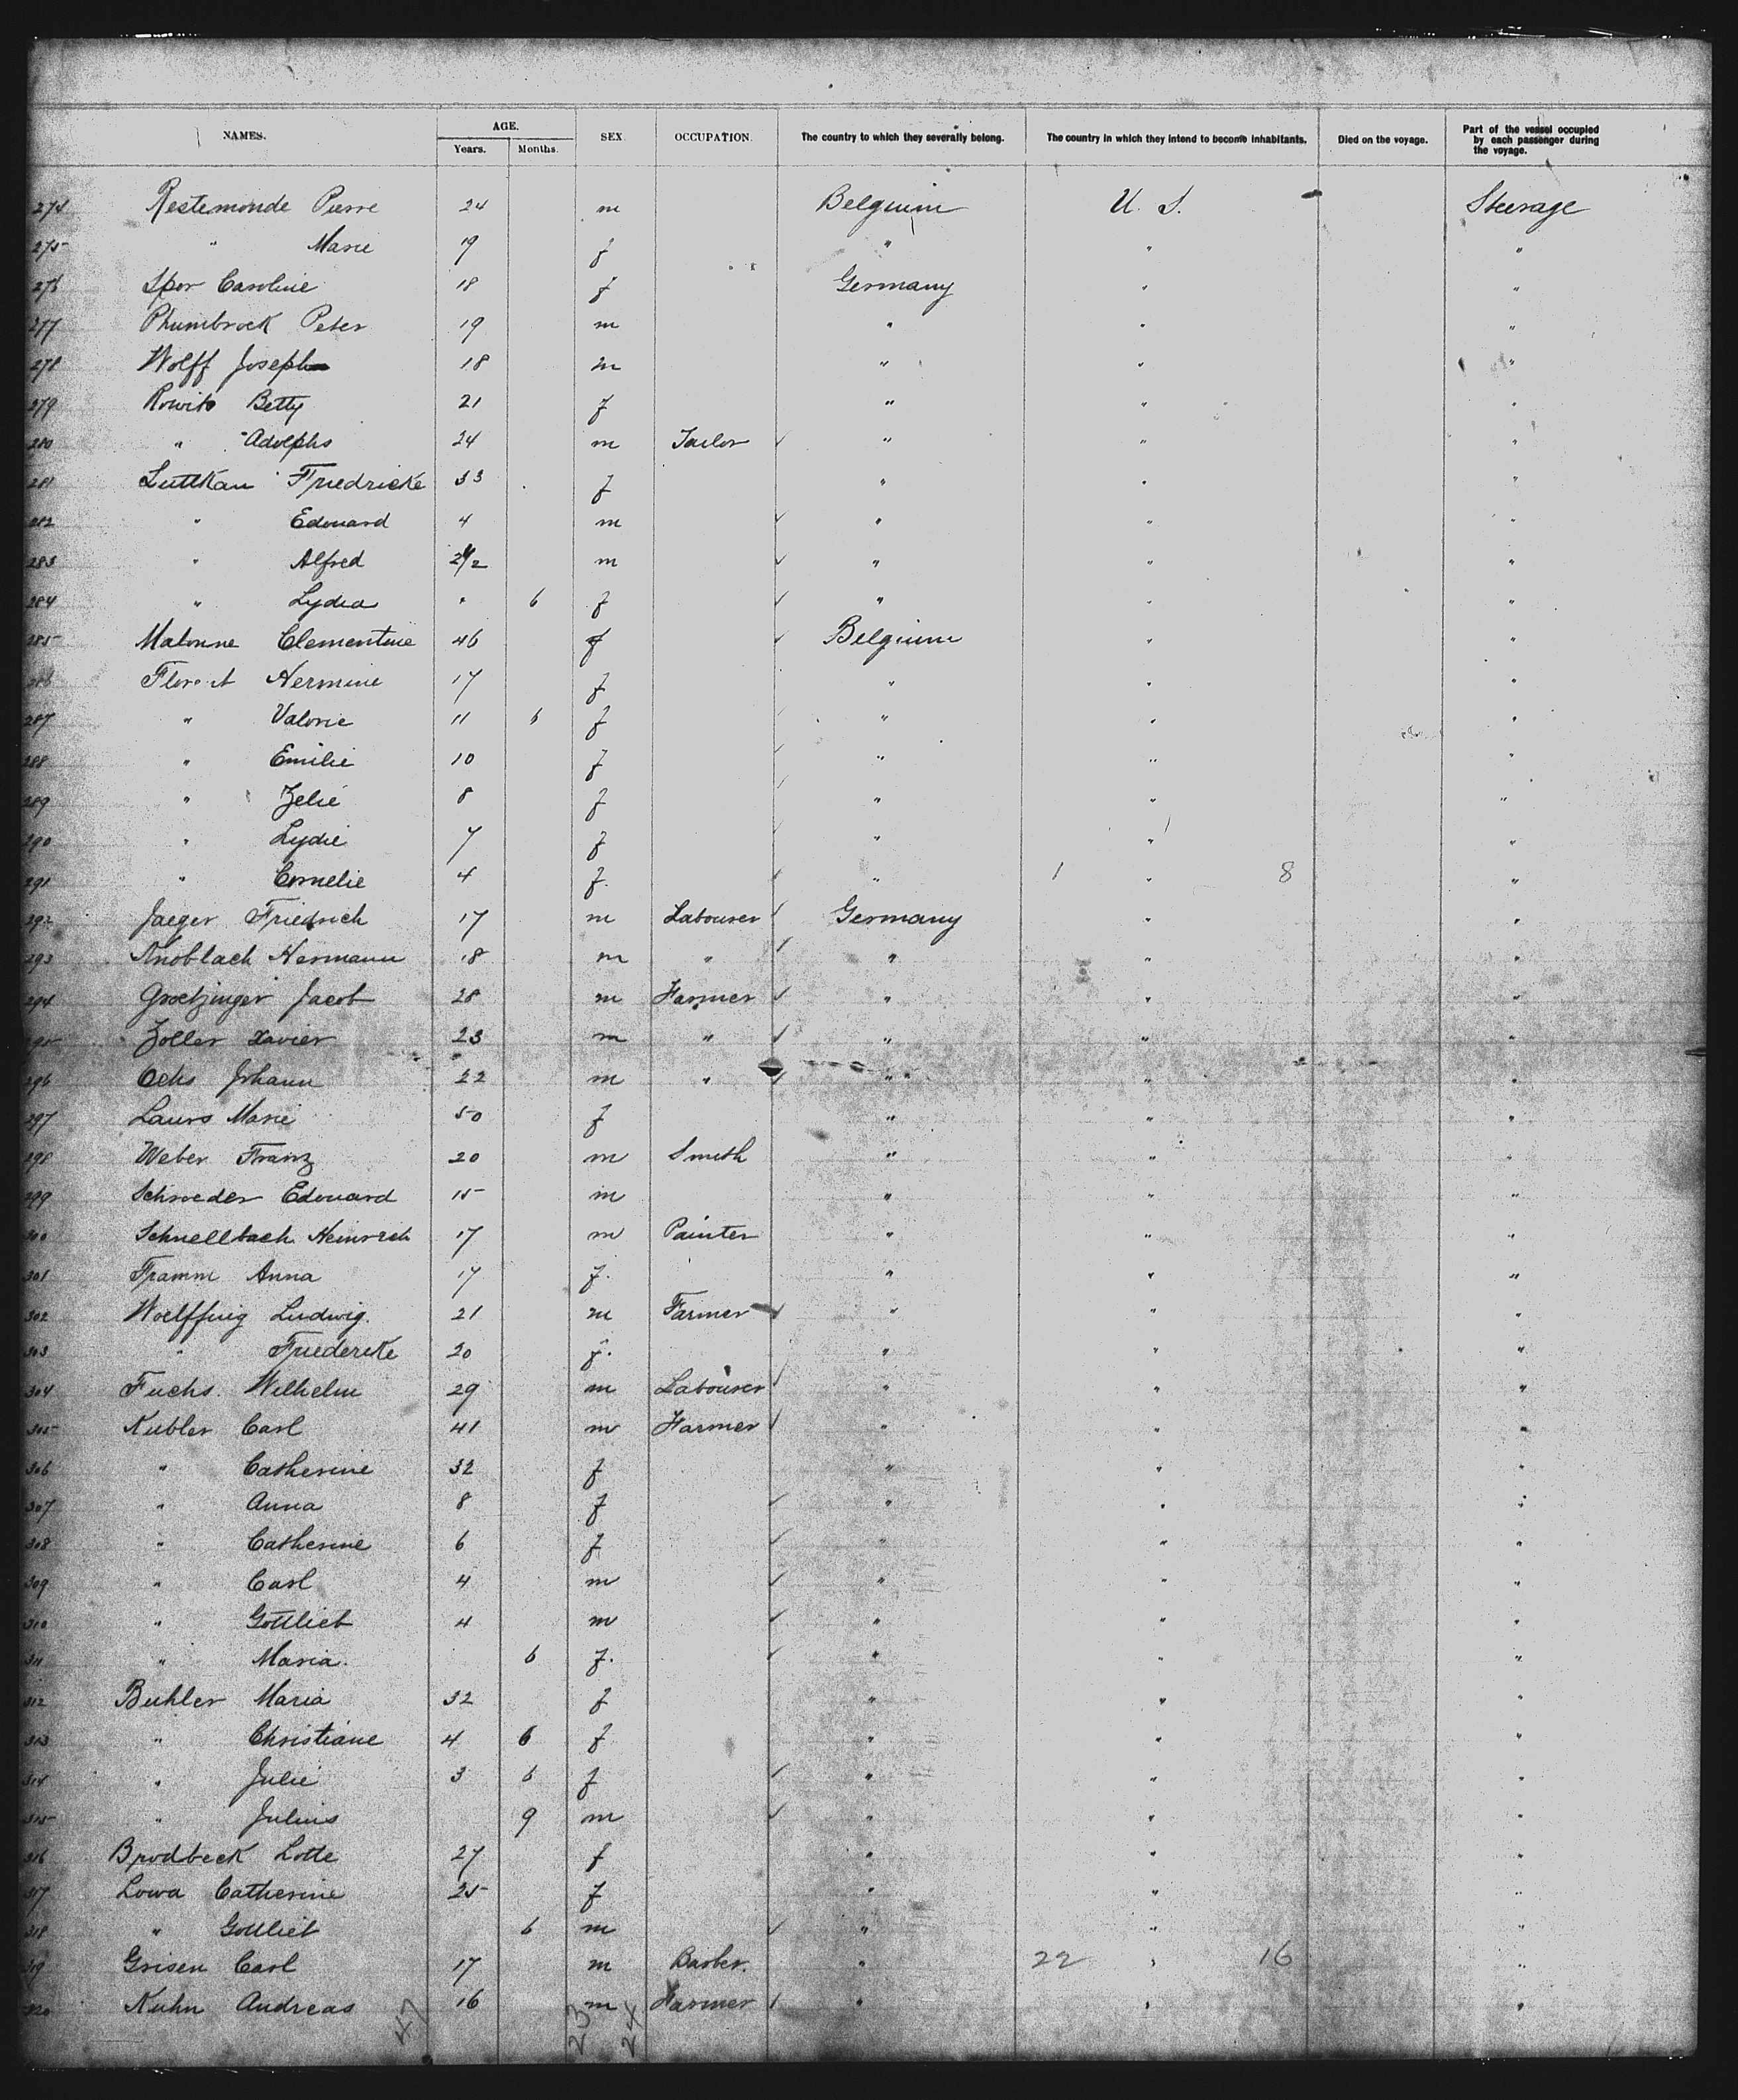 NAMES. AGE. SEX. OCCUPATION. The country to which they severally belong. The country in which they intend to become inhabitants. Died on the voyage. Part of the vessel occupied by each passenger during the voyage.
Years. Months.
274 Restemonde Pierre 24 m Belgium U. S. Steerage
275 " Marie 19 f " " "
276 Spor Caroline 18 f Germany " "
277 Phumbrock Peter 19 m " " "
278 Wolff Joseph 18 m " " "
279 Betty 21 f " " "
280 " Adolphs 24 m Tailor " " "
281 Luttkau Friedricke 33 f " " "
282 " Edouard 4 m " " "
283 " Alfred 2 1/2 m " " "
284 " Lydia " 6 f " " "
285 Malonne Clementine 46 f Belgium " "
286 Hermine 17 f " " "
287 " Valorie 11 6 f " " "
288 " Emilie 10 f " " "
289 " Zelie 8 f " " "
290 " Lydie 7 f " " "
291 " Cornelie 4 f. " 1 " 8 "
292 Jaeger Friedrich 17 m Labourer Germany " "
293 Knoblach Hermann 18 m " " " "
294 Groetzinger Jacob 28 m Farmer " " "
295 Zoller Xavier 23 m " " " "
296 Ochs Johann 22 m " " " "
297 Laurs Marie 50 f " " "
298 Weber Franz 20 m Smith " " "
299 Schroeder Edouard 15 m " " "
300 Schnellbach Heinrich 17 m Painter " " "
301 Framm Anna 17 f. " " "
302 Woelffing Ludwig. 21 m Farmer " " "
303 " Friedereke 20 f. " " "
304 Fuchs. Wilhelm 29 m Labourer " " "
305 Kubler Carl 41 m Farmer " " "
306 " Catherine 32 f " " "
307 " Anna 8 f " " "
308 " Catherine 6 f " " "
309 " Carl 4 m " " "
310 " Gottlieb 4 m " " "
311 " Maria. 6 f. " " "
312 Buhler Maria 32 f " " "
313 " Christiane 4 6 f " " "
314 " Julie 3 6 f " " "
315 " Julius 9 m " " "
316 Brodbeck Lotte 27 f " " "
317 Lowa Catherine 25 f " " "
318 " Gottlieb 6 m " " "
319 Grisen Carl 17 m Barber. " 22 " 16 "
320 Kuhn Andreas 16 m Farmer " " "
47 23 24